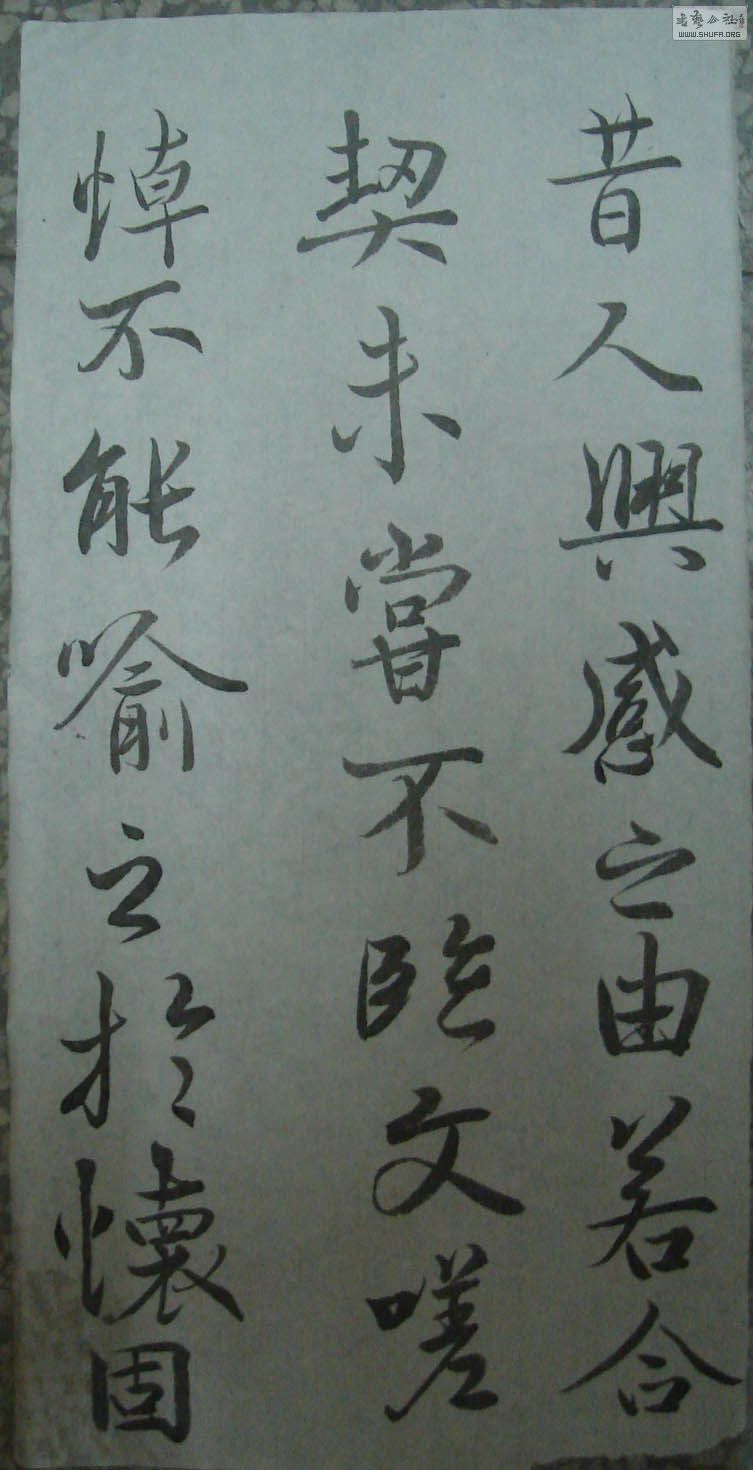 昔人興感之由若合
契未嘗不臨文嗟
悼不能喻之於懷固
书艺公社
WWW.SHUFA.ORG